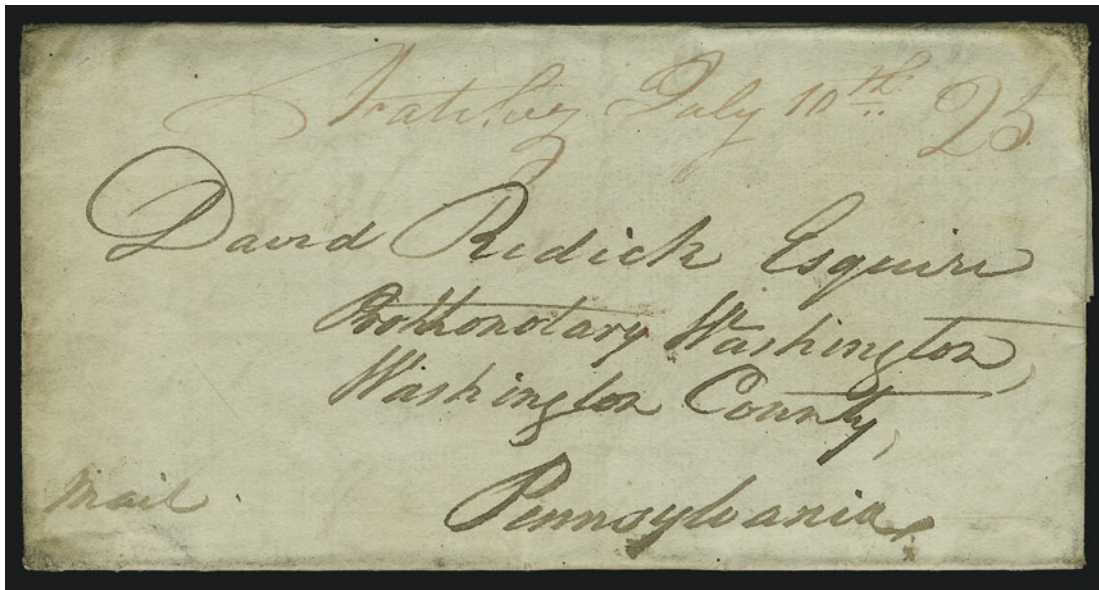 Natchez July 10th 25
David Redick Esquire
Prothonotary Washington
Washington County,
Pennsylvania
Mail